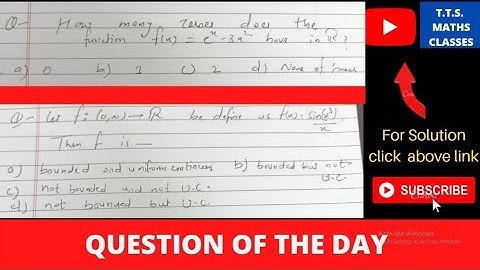 Q- How many zeroes does the
function f(x) = eˣ - 3x² have in ℝ?
a) 0 b) 1 c) 2 d) None of these
Q- Let f: (0,∞) → ℝ be define as f(x) = sin(x³)/x
Then f is —
a) bounded and uniform continuous b) bounded but not U.C.
c) not bounded and not U.C.
d) not bounded but U.C.
T.T.S.
MATHS
CLASSES
For Solution
click above link
SUBSCRIBE
Activate Windows
QUESTION OF THE DAY